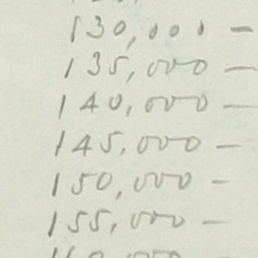 130,000 —
135,000 —
140,000 —
145,000 —
150,000 —
155,000 —